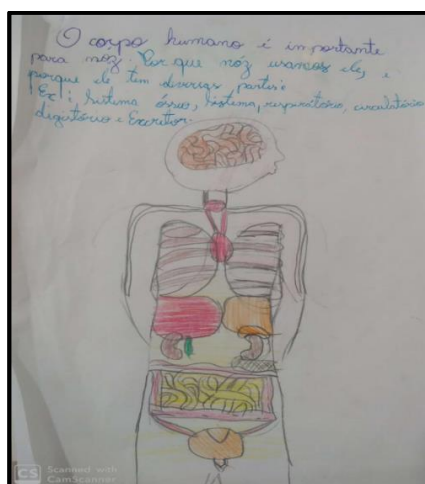 O corpo humano é importante
para nóz. Por que nóz usamos ele, e
porque ele tem diverças partes:
Ex: Sistema ósseo, sistema, respiratório, circulatório
digestório e Excretor.
CS Scanned with
CamScanner